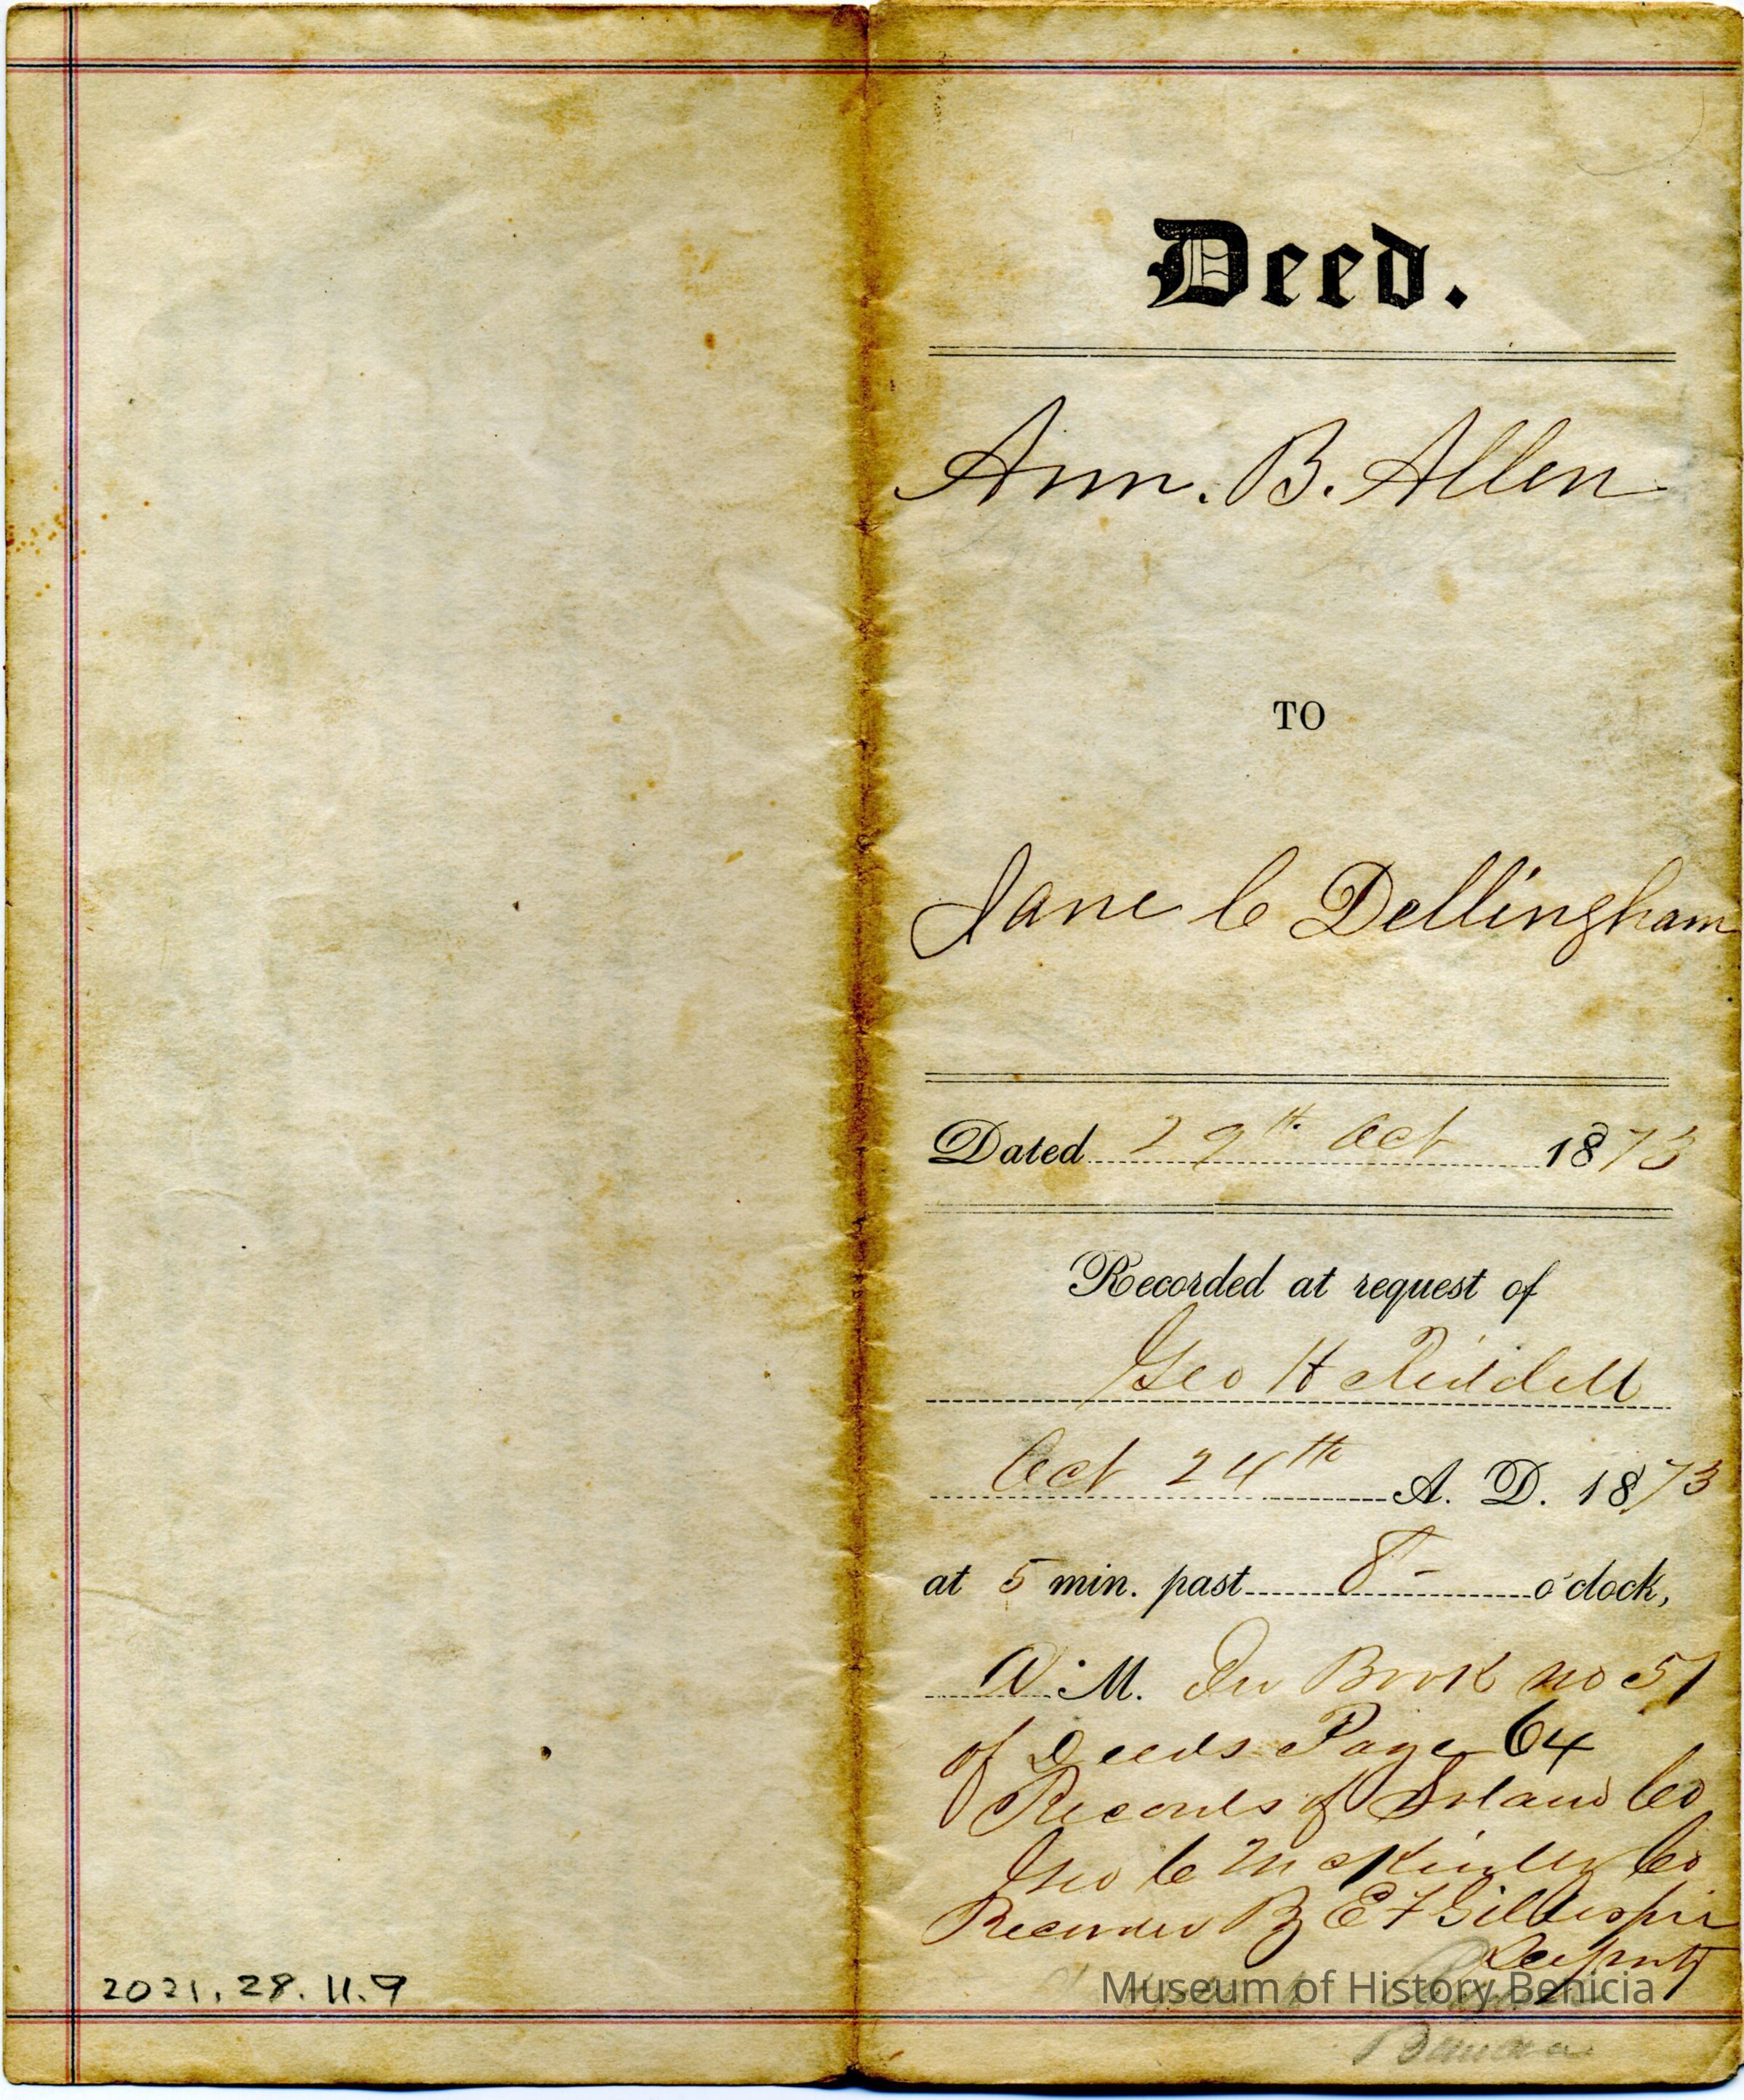 Deed.
Ann. B. Allen
TO
Jane C Dellingham
Dated 29th Oct 1873
Recorded at request of
Geo H Riddell
Oct 24th A. D. 1873
at 5 min. past 8 - o'clock,
A. M. In Book no 51
of Deeds Page 64
Records of Solano Co
Geo C McKinley Co
Recorder By E F Gillespie
Deputy
2021.28.11.9
Museum of History Benicia
Benicia